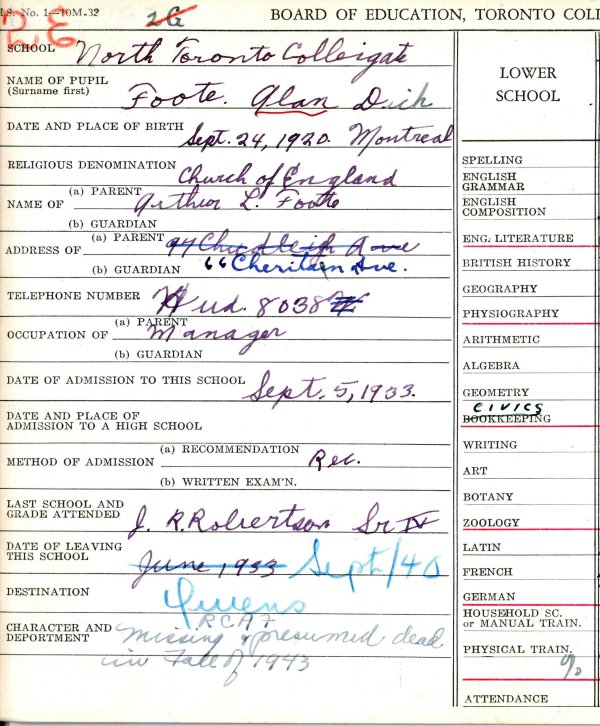 I.S. No. 1—10M-32 2G BOARD OF EDUCATION, TORONTO COLL
SCHOOL North Toronto Colleigate
NAME OF PUPIL
(Surname first) Foote. Alan Dick
DATE AND PLACE OF BIRTH Sept. 24, 1920. Montreal
RELIGIOUS DENOMINATION Church of England
NAME OF (a) PARENT Arthur L. Foote
(b) GUARDIAN
ADDRESS OF (a) PARENT 94 Chudleigh Ave
(b) GUARDIAN 66 Cheritan Ave.
TELEPHONE NUMBER Hud. 8038
OCCUPATION OF (a) PARENT Manager
(b) GUARDIAN
DATE OF ADMISSION TO THIS SCHOOL Sept. 5, 1933.
DATE AND PLACE OF
ADMISSION TO A HIGH SCHOOL
METHOD OF ADMISSION (a) RECOMMENDATION Rec.
(b) WRITTEN EXAM'N.
LAST SCHOOL AND
GRADE ATTENDED J. R. Robertson Sr IV
DATE OF LEAVING
THIS SCHOOL June 1933 Sept/40
DESTINATION Queens
RCAF
CHARACTER AND
DEPORTMENT missing & presumed dead
in Fall of 1943
LOWER
SCHOOL
SPELLING
ENGLISH
GRAMMAR
ENGLISH
COMPOSITION
ENG. LITERATURE
BRITISH HISTORY
GEOGRAPHY
PHYSIOGRAPHY
ARITHMETIC
ALGEBRA
GEOMETRY
CIVICS
BOOKKEEPING
WRITING
ART
BOTANY
ZOOLOGY
LATIN
FRENCH
GERMAN
HOUSEHOLD SC.
or MANUAL TRAIN.
PHYSICAL TRAIN.
ATTENDANCE